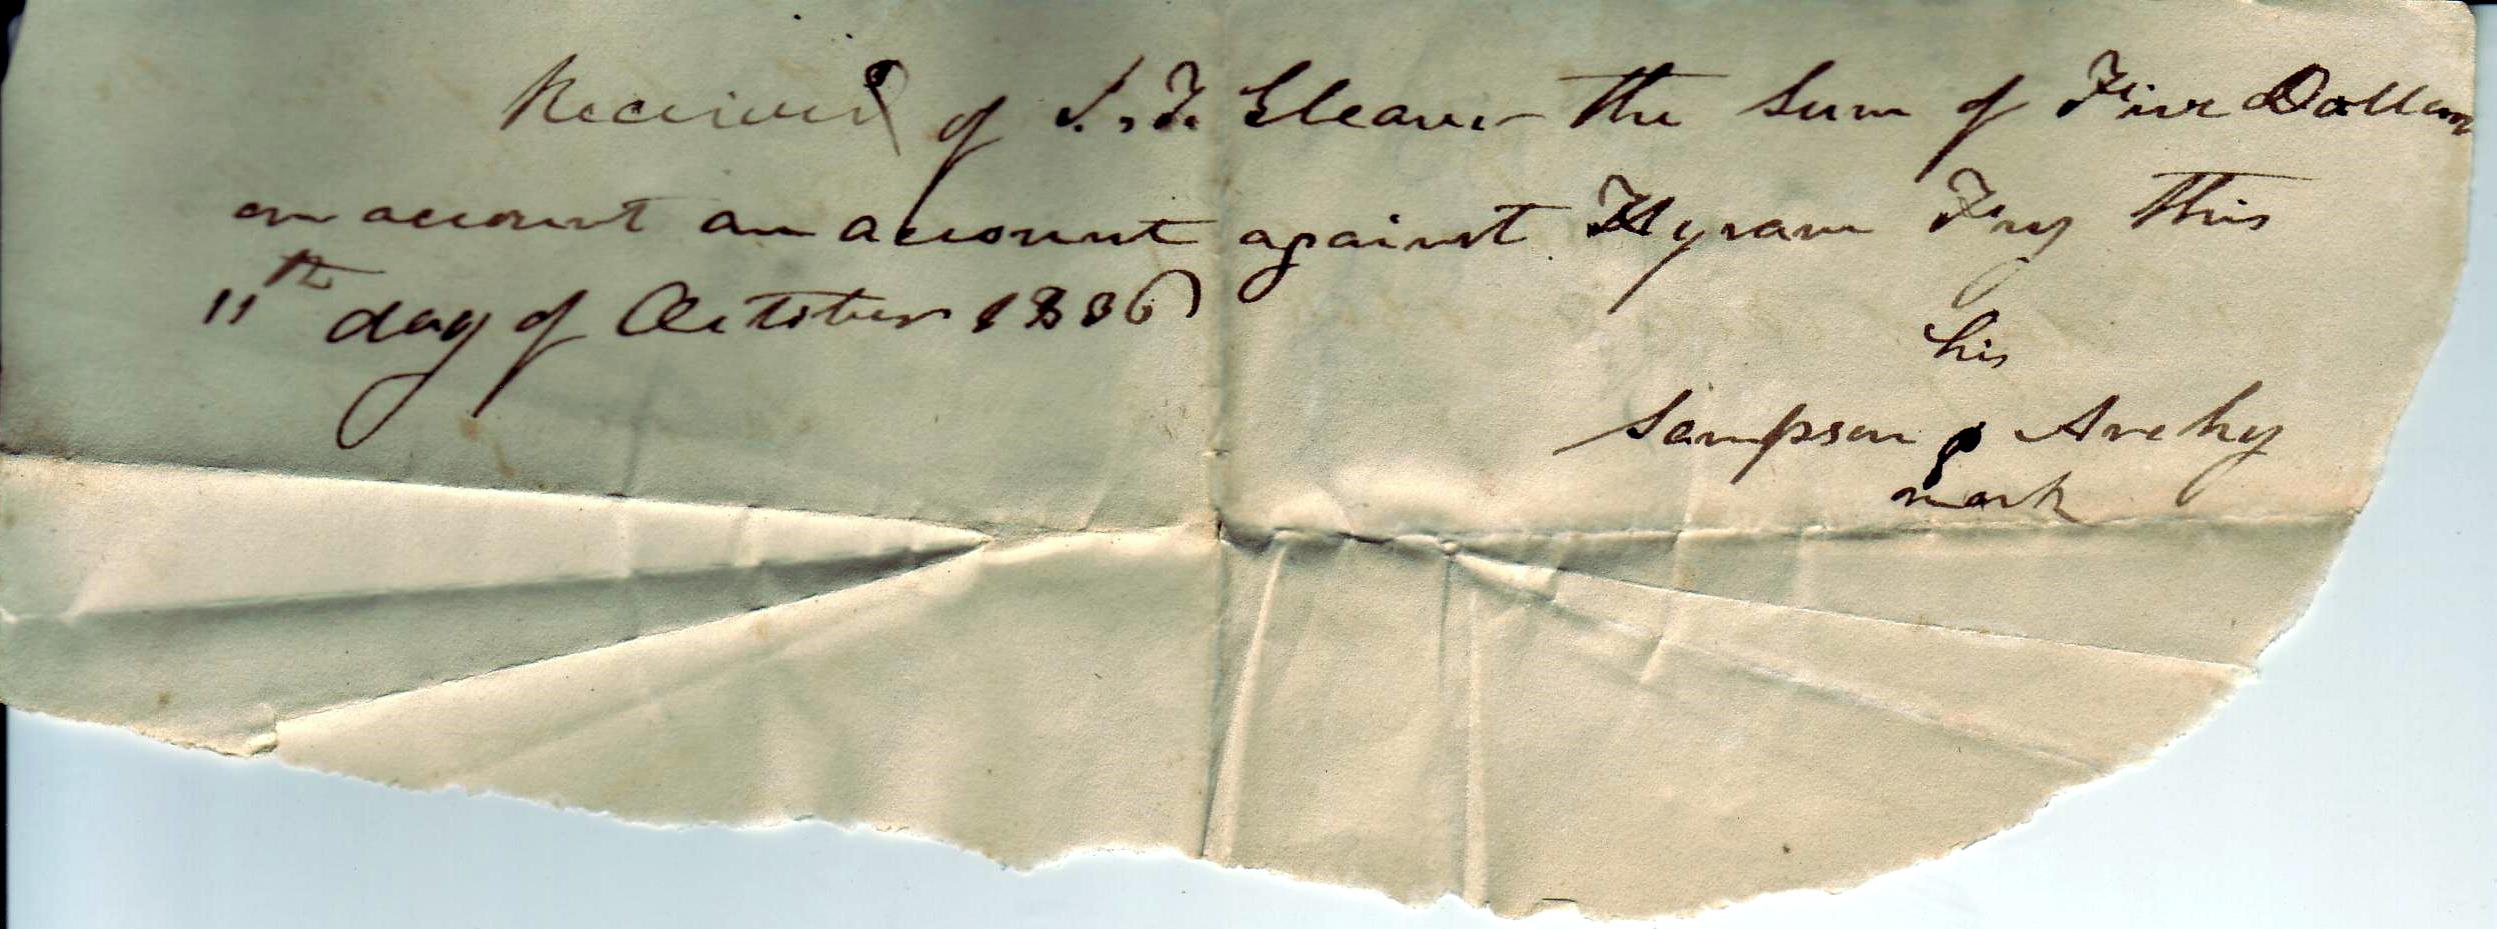 Received of S. F. Gleaves the Sum of Five Dollars
on account an account against Hyram Fry this
11th day of October 1836
his
Sampson Archy
mark